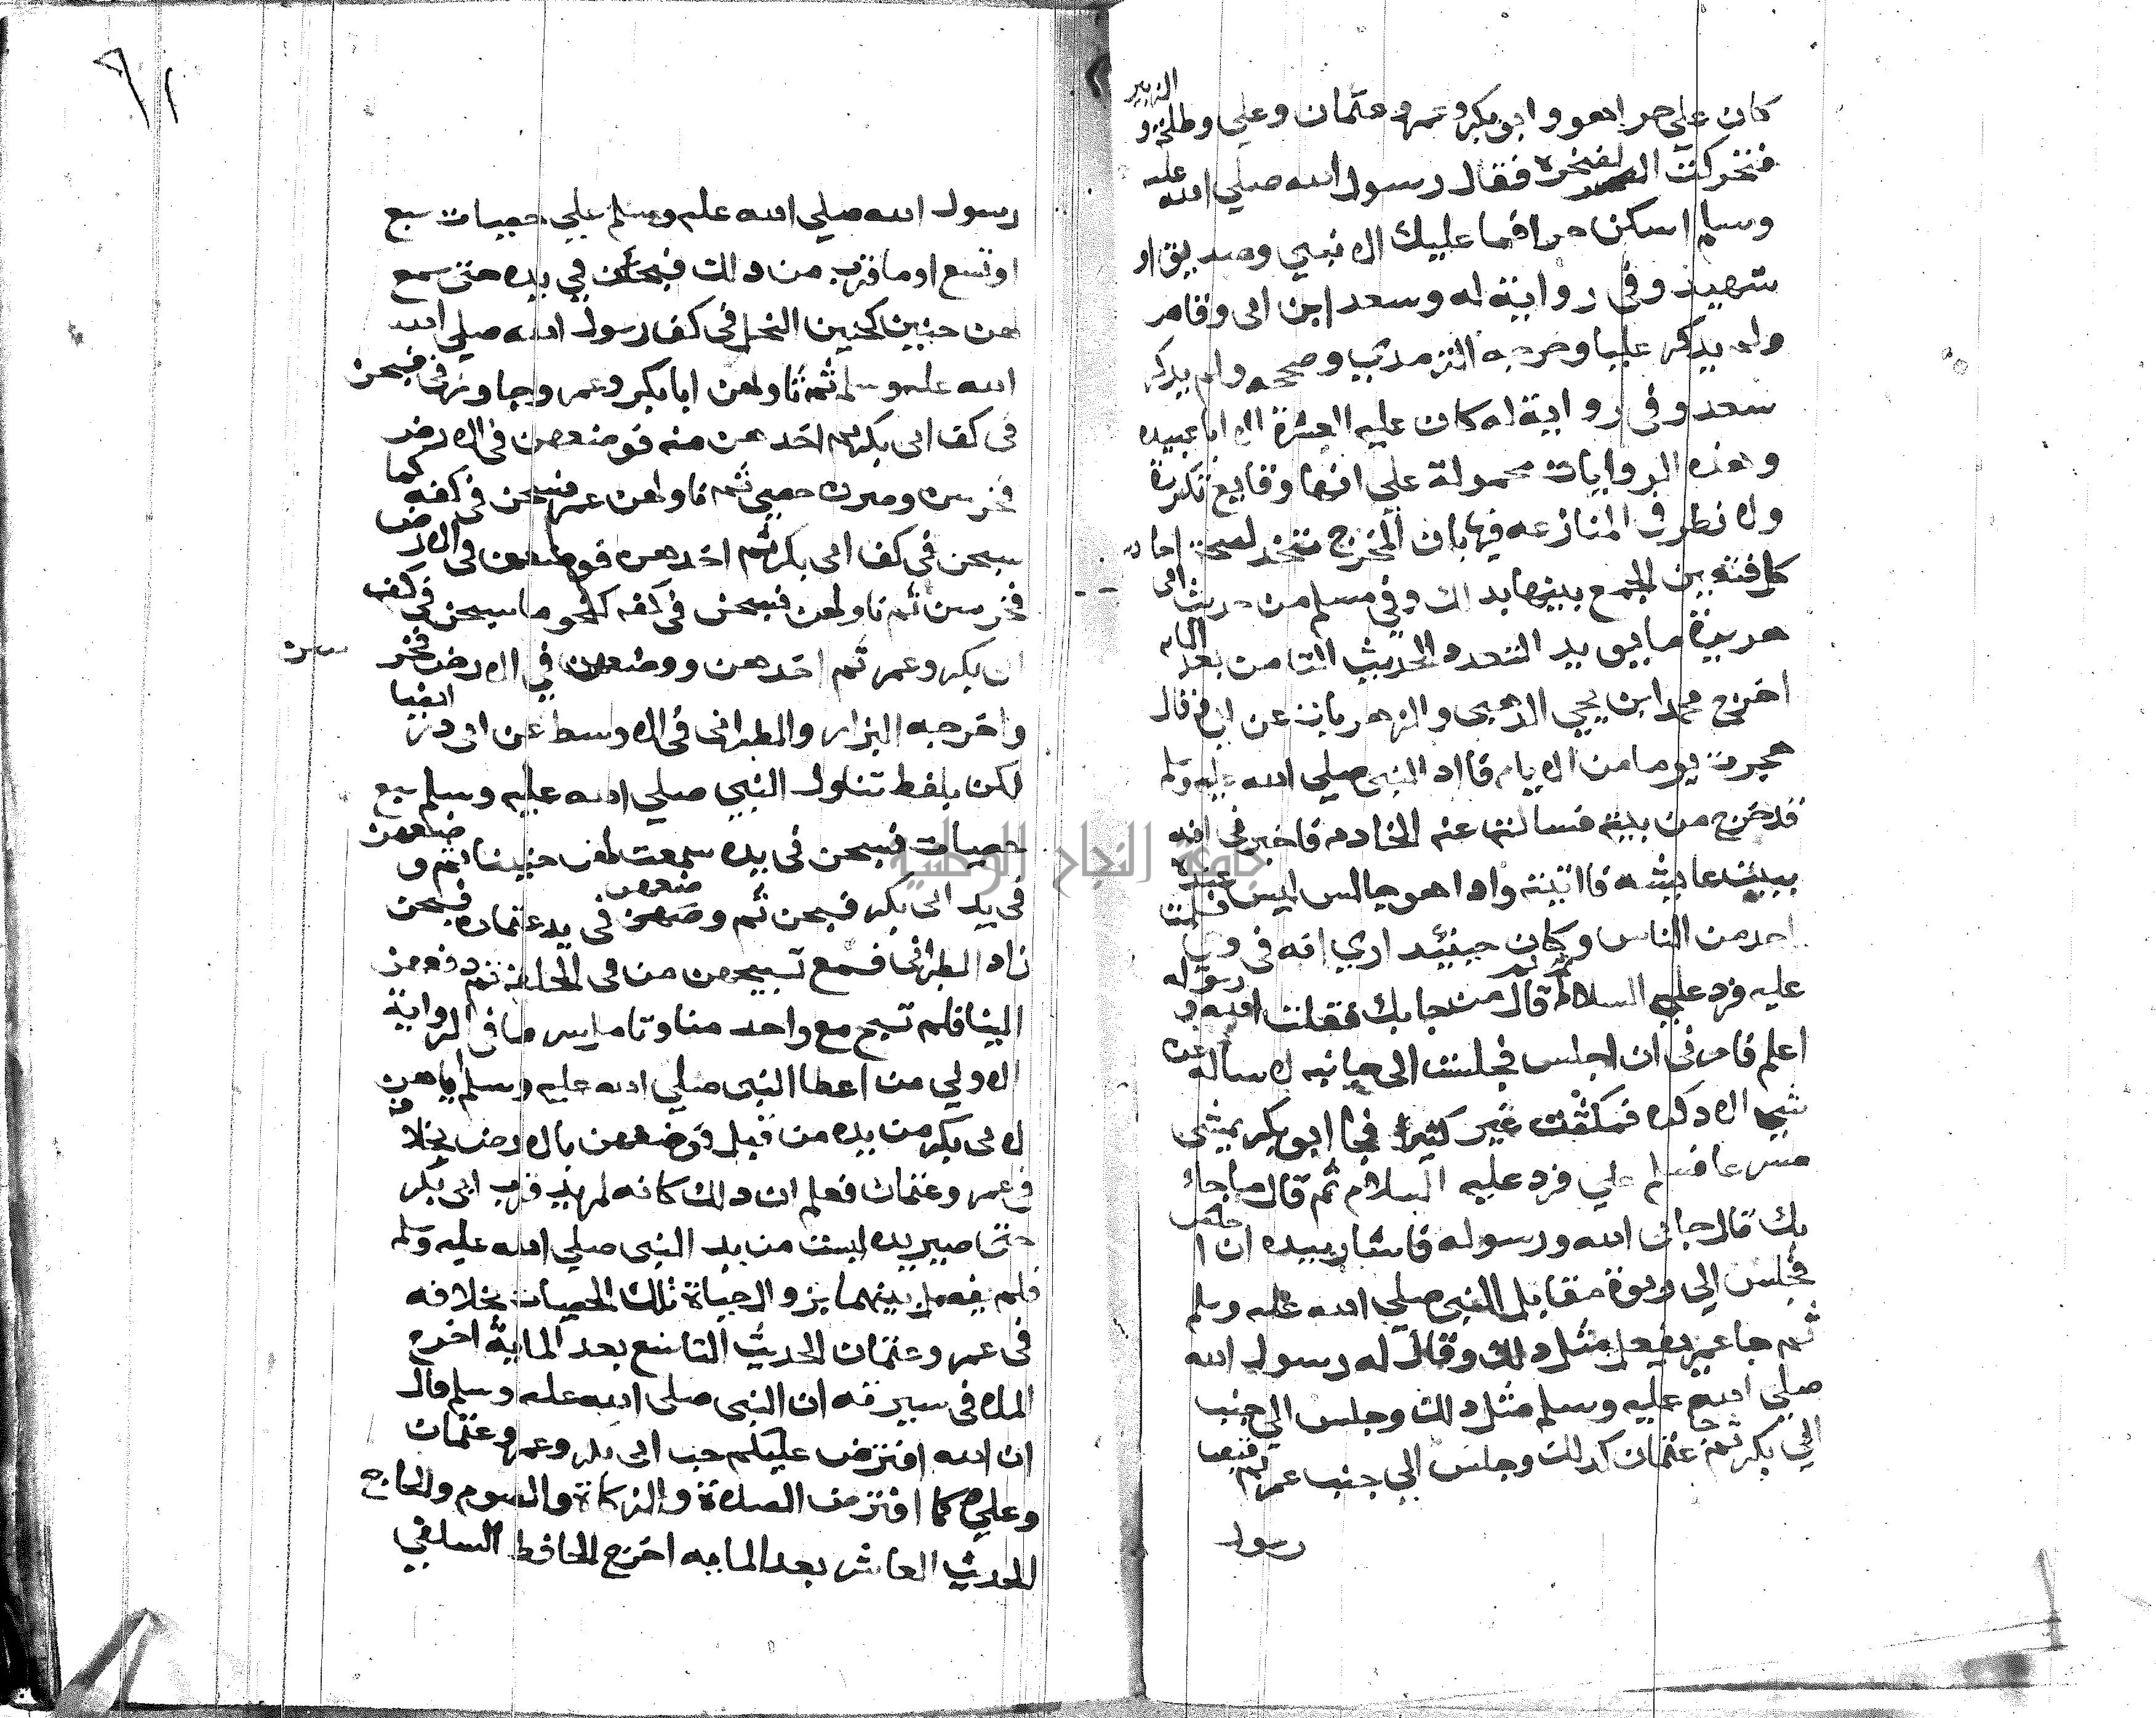 كان علي حرا هو وابو بكر وعمر وعثمان وعلي وطلحة والزبير
فتحركت الصخرة فقال رسول الله صلي الله عليه
وسلم اسكن حرا فما عليك الا نبي وصديق او
شهيد وفي رواية له وسعد ابن ابي وقاص
ولم يذكر عليا وخرجه الترمذي وصححه ولم يذكر
سعد وفي رواية له كان عليه العشرة الا ابا عبيده
وهذه الروايات محمولة علي انها وقايع تكررت
ولا نظر في المنازعه فيها بان المخرج متحد لصحة احاديث
كل فتعين الجمع بينها بذلك وفي مسلم من حديث ابي
هريرة ما يويد التعدد الحديث الثامن بعد المايه
اخرج محمد ابن يحيي الذهبي والزهريات عن ابي ذر قال
هجرت يوما من الايام فاذا النبي صلي الله عليه وسلم
قد خرج من بيته فسالت عنه الخادم فاخبرني انه
ببيت عايشه فاتيته واذا هو جالس ليس عنده
احد من الناس وكان حينيد اري انه في وحي فسلمت
عليه فرد علي السلام ثم قال من جا بك فقلت الله ورسوله
اعلم فامرني ان اجلس فجلست الي جانبه لا ساله عن
شي الا ذكره فمكثت غير كثير فجا ابو بكر يمشي
مسرعا فسلم علي فرد عليه السلام ثم قال ما جاء
بك قال جابي الله ورسوله فاشار بيده ان اجلس
فجلس الي ربوة مقابل النبي صلي الله عليه وسلم
ثم جا عمر ففعل مثل ذلك وقال له رسول الله
صلي الله عليه وسلم مثل ذلك وجلس الي جنب
ابي بكر ثم جا عثمان كذلك وجلس الي جنب عمر ثم قبض
رسول
٦١
رسول الله صلي الله عليه وسلم علي حصيات سبع
او تسع او ما قرب من ذلك فسبحن في يده حتي سمع
لهن حنين كحنين النحل في كف رسول الله صلي الله
الله عليه وسلم ثم ناولهن ابا بكر وعمر وجاوزني فسبحن
في كف ابي بكر ثم اخذهن منه فوضعهن في الارض
فخرسن وصرن حصي ثم ناولهن عمر فسبحن في كفه كما
سبحن في كف ابي بكر ثم اخذهن فوضعهن في الارض
فخرسن ثم ناولهن فسبحن في كفه كنحو ما سبحن في كف
ابي بكر وعمر ثم اخذهن ووضعهن في الارض فخرسن
واخرجه البزار والطبراني في الاوسط عن ابي ذر ايضا
لكن بلفظ تناول النبي صلي الله عليه وسلم سبع
حصيات فسبحن في يده سمعت لهن حنينا ثم وضعهن
في يد ابي بكر فسبحن ثم وضعهن في يد عثمان فسبحن
زاد الطبراني فسمع تسبيحهن من في الحلقة ثم دفعهن
الينا فلم تسبح مع واحد منا وتامل سر ما في الرواية
الاولي من اعطا النبي صلي الله عليه وسلم اياهن
لابي بكر من يده من قبل وضعهن بالارض بخلافه
في عمر وعثمان فعلم ان ذلك كانه لمزيد قرب ابي بكر
حتي صير يده ليست من يد النبي صلي الله عليه وسلم
فلم يفصل بينهما بزوال حياة تلك الحصيات بخلافه
في عمر وعثمان الحديث التاسع بعد الماية اخرج
الملا في سيرته ان النبي صلي الله عليه وسلم قال
ان الله افترض عليكم حب ابي بكر وعمر وعثمان
وعلي كما افترض الصلاة والزكاة والصوم والحج
الحديث العاشر بعد المايه اخرج الحافظ السلفي
جامعة النجاح الوطنية